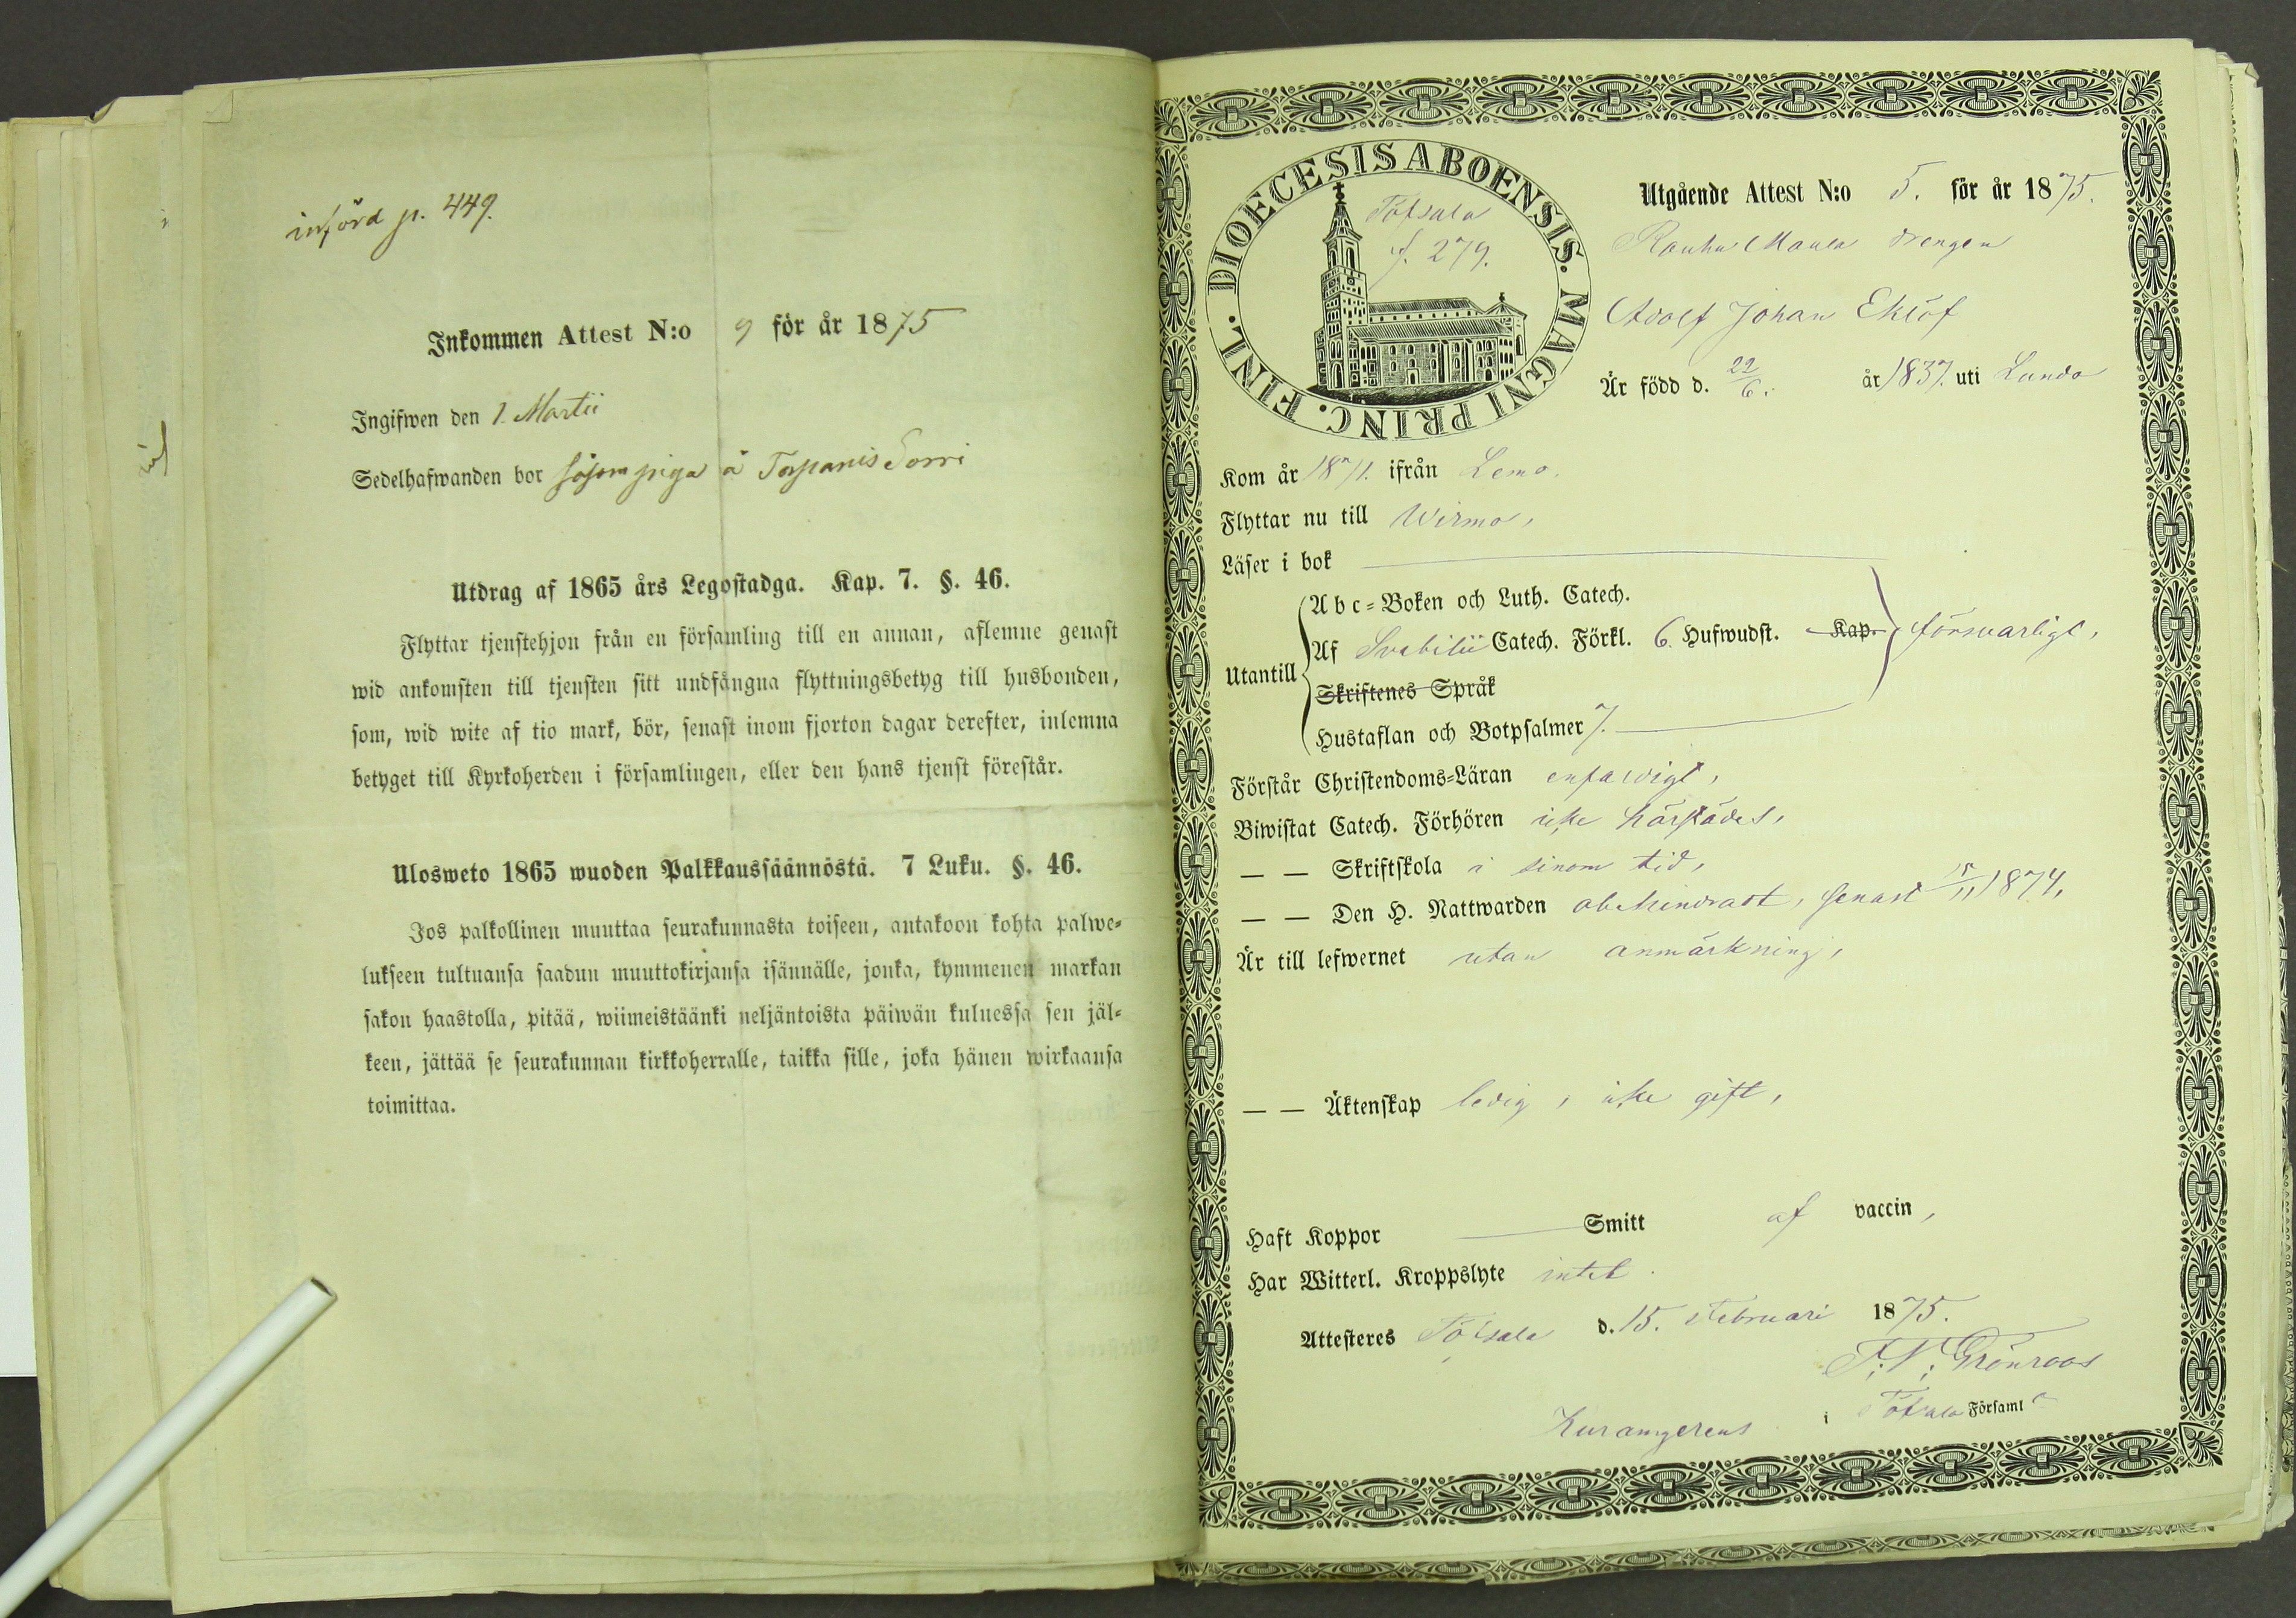 införd p. 449.
Inkommen Attest N:o 9 för år 1875
Ingifwen den 1. Martii
Sedelhafwanden bor såsom piga å Torpanis Sorri
Utdrag af 1865 års Legostadga. Kap. 7. §. 46.
Flyttar tjenstehjon från en församling till en annan, aflemne genast
wid ankomsten till tjensten sitt undfångna flyttningsbetyg till husbonden,
som, wid wite af tio mark, bör, senast inom fjorton dagar derefter, inlemna
betyget till Kyrkoherden i församlingen, eller den hans tjenst förestår.
Ulosweto 1865 wuoden Palkkaussäännöstä. 7 Luku. §. 46.
Jos palkollinen muuttaa seurakunnasta toiseen, antakoon kohta palwe=
lukseen tultuansa saadun muuttokirjansa isännälle, jonka, kymmenen markan
sakon haastolla, pitää, wiimeistäänki neljäntoista päiwän kuluessa sen jäl=
keen, jättää se seurakunnan kirkkoherralle, taikka sille, joka hänen wirkaansa
toimittaa.
DIOECESIS ABOENSIS. MAGNI PRINC. FINL.
Töfsala
f. 279.
Utgående Attest N:o 5. för år 1875.
Rauhu Maula drengen
Adolf Johan Eklöf
Är född d. 22/6. år 1837. uti Lundo
Kom år 1871. ifrån Lemo.
Flyttar nu till Wirmo,
Läser i bok
Utantill
Abc=Boken och Luth. Catech.
Af Svebilii Catech. Förkl. 6. Hufwudst. Kap. försvarligt,
Skriftenes Språk
Hustaflan och Botpsalmer 7.
Förstår Christendoms=Läran enfaldigt,
Biwistat Catech. Förhören icke härstädes,
— — Skriftskola i sinom tid,
— — Den H. Nattwarden obehindradt, senast 15/11 1874,
Är till lefwernet utan anmärkning,
— — Äktenskap ledig, icke gift,
Haft Koppor Smitt af vaccin,
Har Witterl. Kroppslyte intet.
Attesteres Töfsala d. 15. Februari 1875.
F. V. Grönroos
i Töfsala Församl